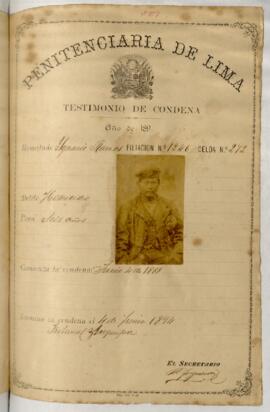 PENITENCIARIA DE LIMA
TESTIMONIO DE CONDENA
Año de 189
Rematado Ygnacio Ramos FILIACION N.º 1246 CELDA N.º 272
Delito Homicidio
Pena Seis años
Comienza la condena: Junio 4 de 1888
Termina la condena el 4 de Junio 1894
Tribunal Arequipa
EL SECRETARIO